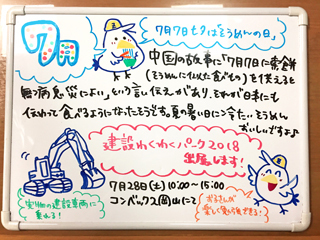 7月
「7月7日七夕はそうめんの日」
中国の故事に「7月7日に索餅
(そうめんに似た食べもの)を供えると
無病息災によい」という言い伝えがあり、それが日本にも
伝わって食べるようになったそうです。夏の暑い日に冷たいそうめん
おいしいですよ♪
建設わくわくパーク2018
出展します!
7月28日(土)10:00〜15:00
コンベックス岡山にて
実物の建設車両に
乗れる!
お子さんが
楽しく
できる!